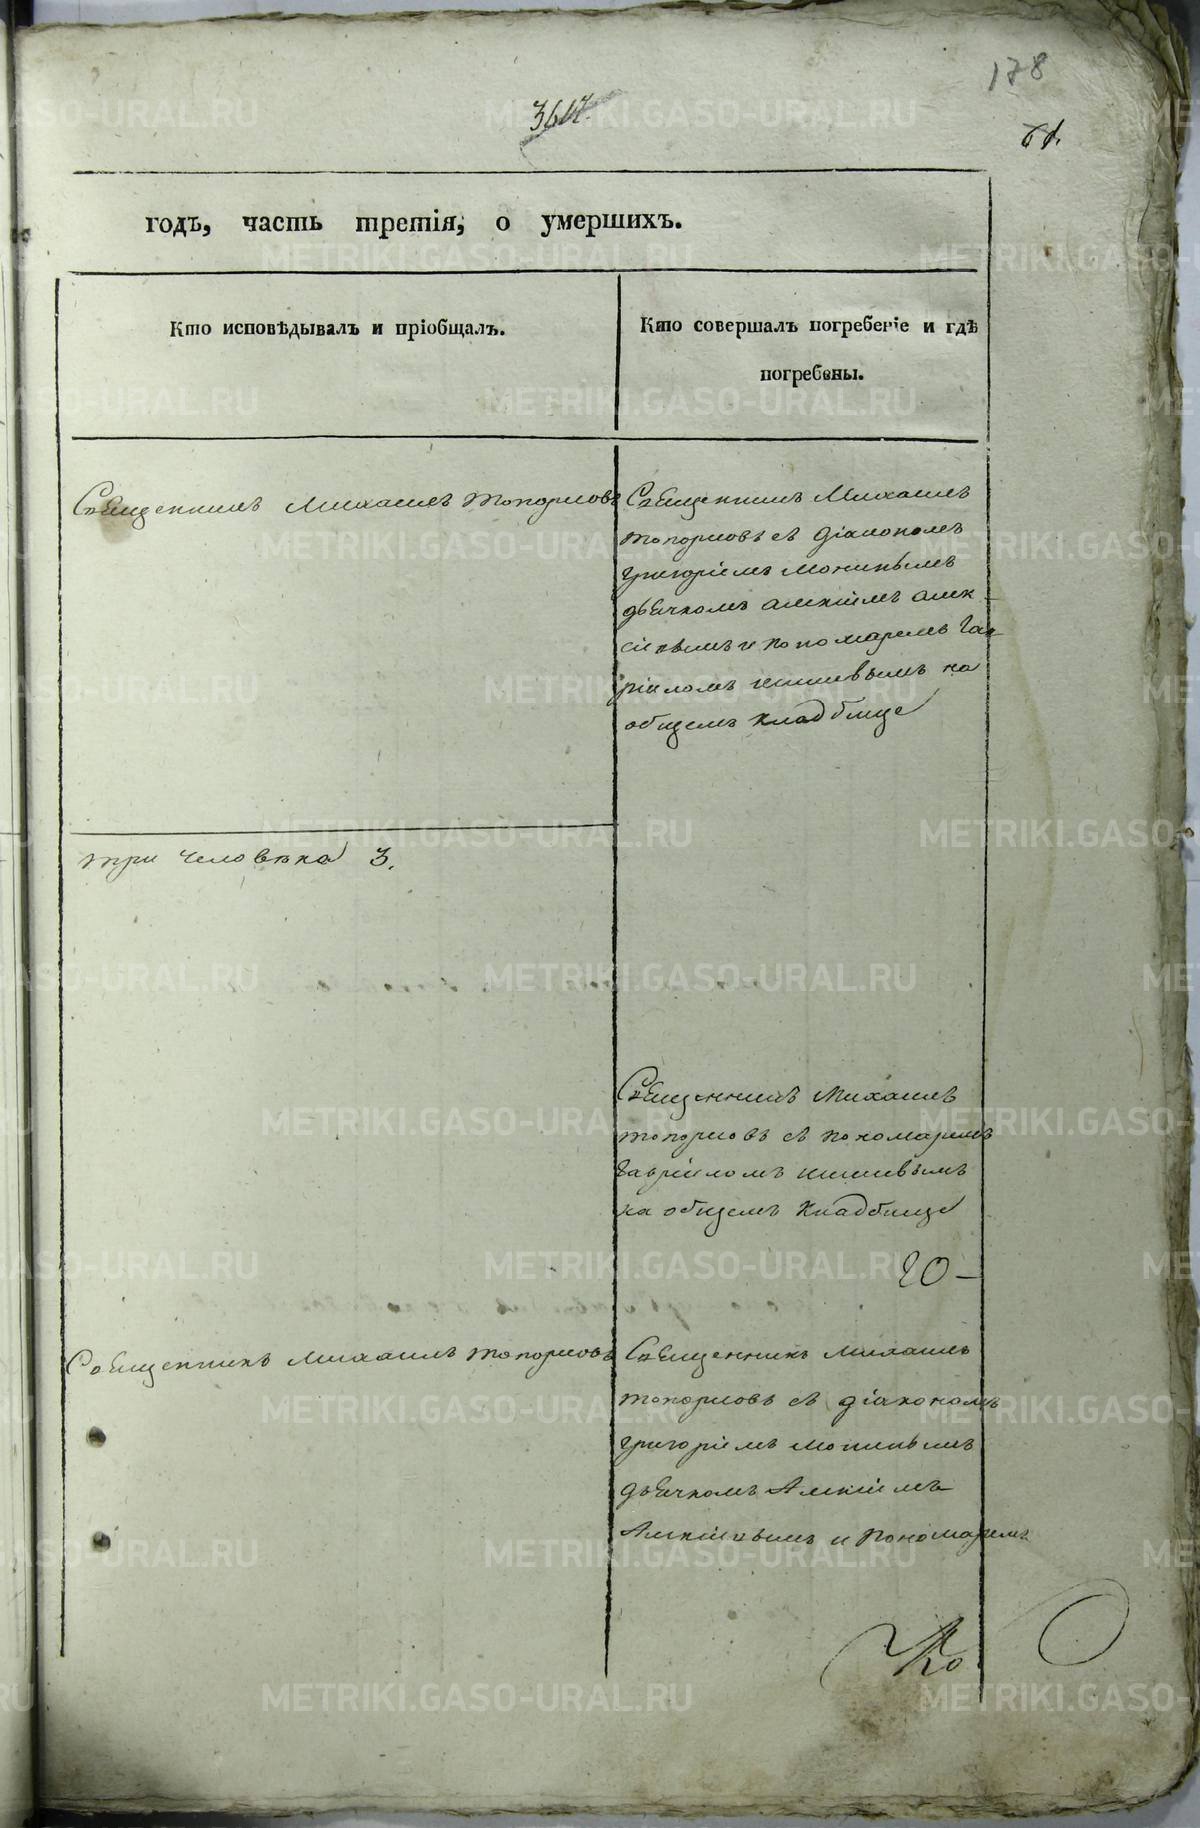 178
3617.
61.
годъ, часть третія, о умершихъ.
Кто исповѣдывалъ и пріобщалъ.
Кто совершалъ погребеніе и гдѣ
погребены.
Священникъ Михаилъ Топорковъ
Священникъ Михаилъ
Топорковъ съ діакономъ
Григоріемъ
дьячкомъ Алексіемъ Алек-
сіевымъ и пономаремъ Гав-
ріиломъ на
общемъ кладбище
три человѣка 3.
Священникъ Михаилъ
Топорковъ съ пономаремъ
Гавріиломъ
на общемъ кладбище
20 —
Священникъ Михаилъ Топорковъ
Священникъ Михаилъ
Топорковъ съ діакономъ
Григоріемъ
дьячкомъ Алексіемъ
Алексіевымъ и пономаремъ
METRIKI.GASO-URAL.RU